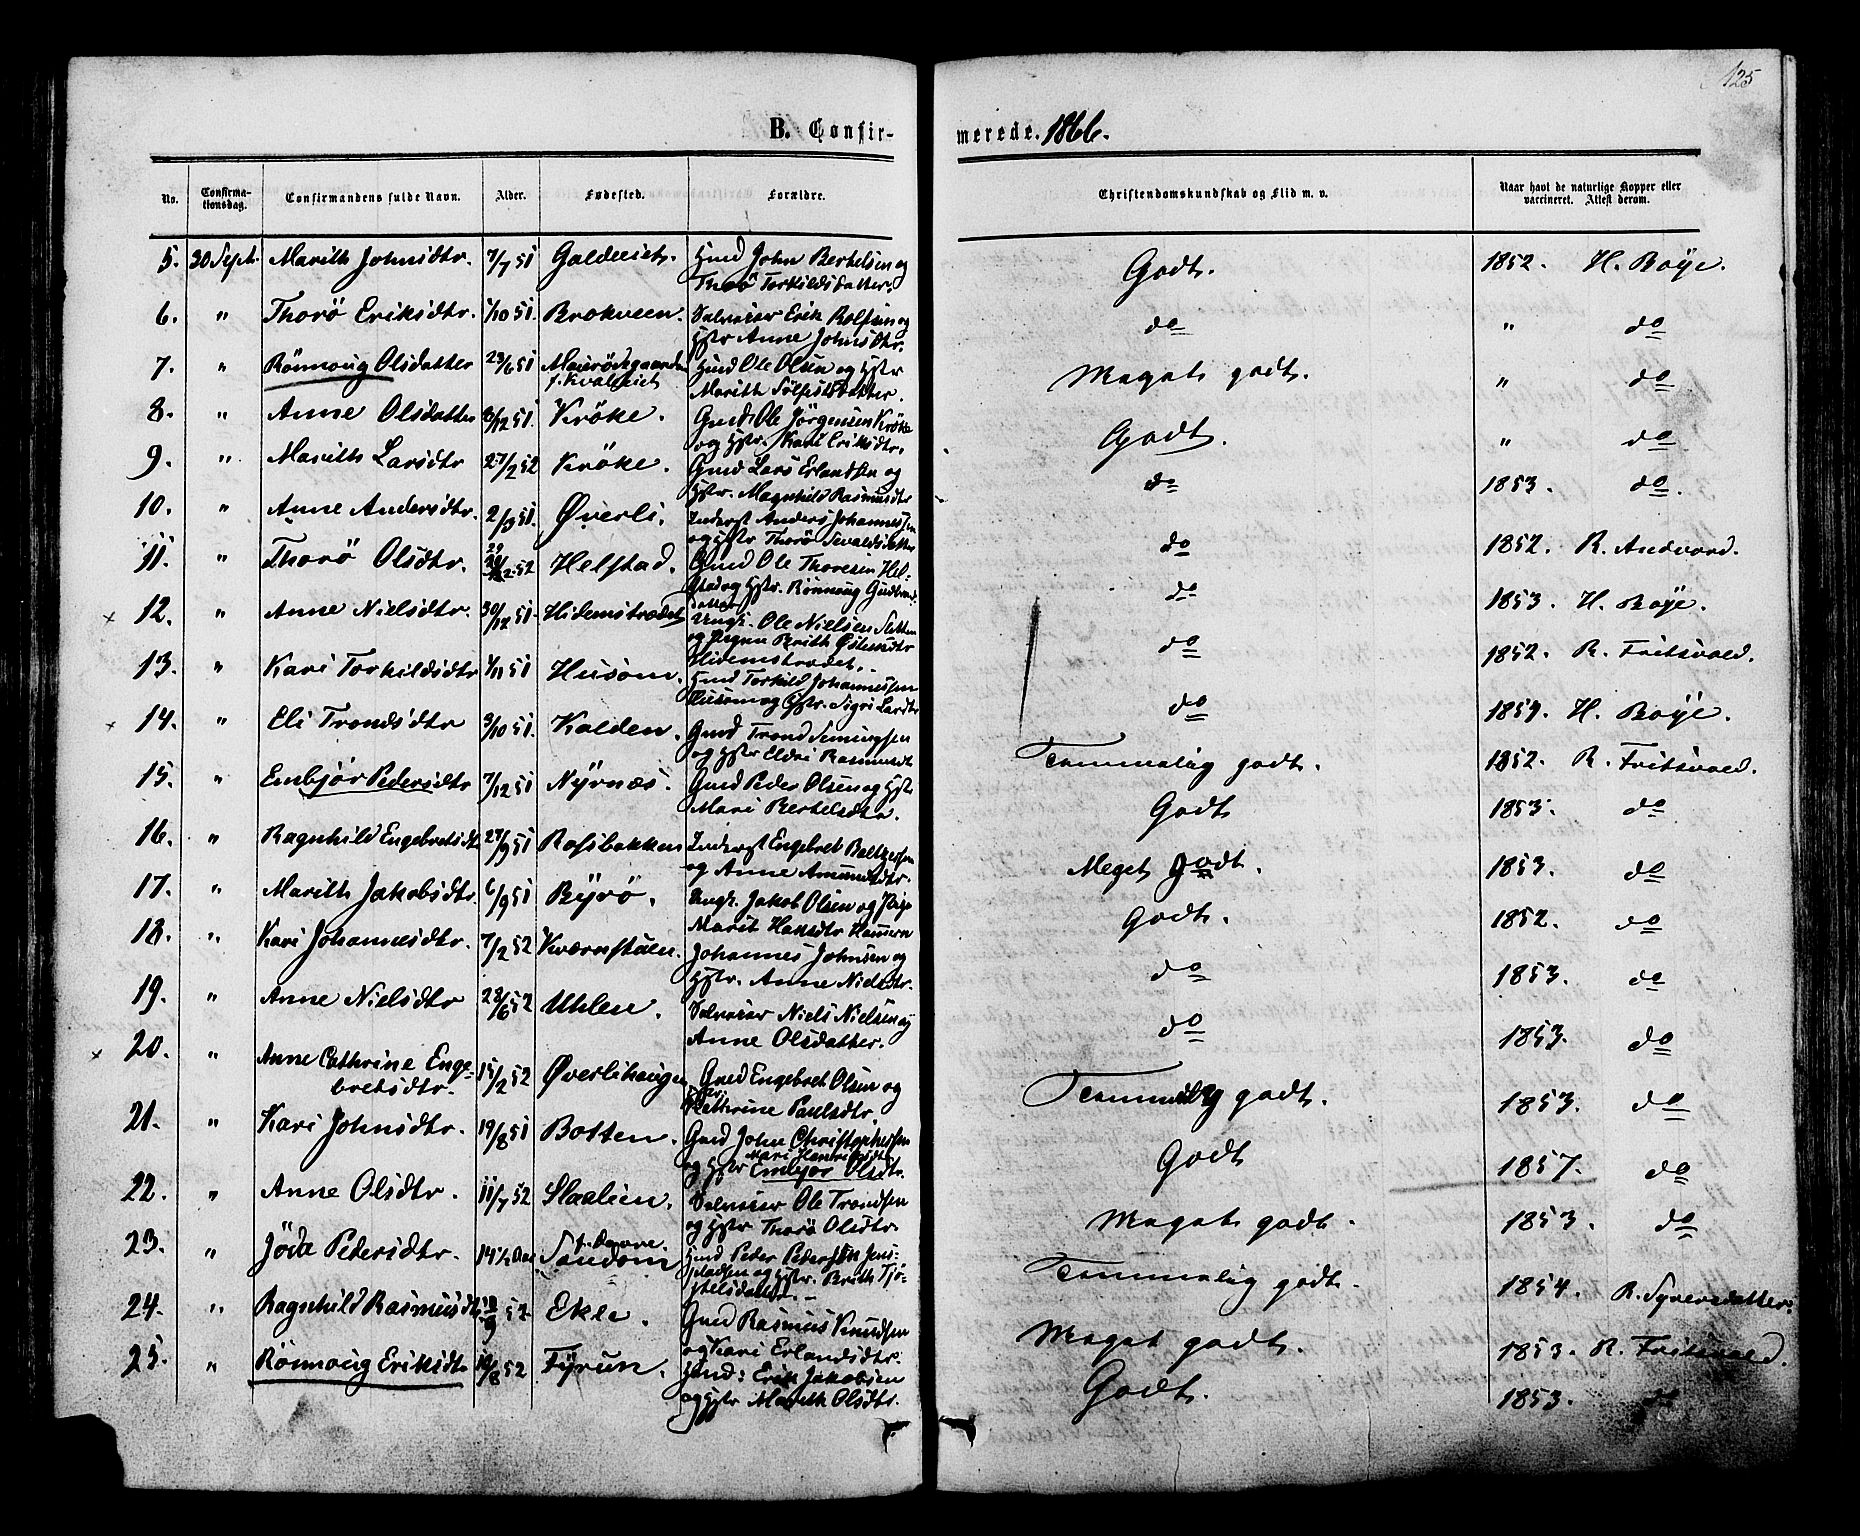 125
B. Confir-
merede. 1866.
No.
Confirma-
tionsdag.
Confirmandens fulde Navn.
Alder.
Fødested.
Forældre.
Christendomskundskab og Flid m. v.
Naar havt de naturlige Kopper eller
vaccineret. Attest derom.
5. 30 Sept. Marith Johnsdtr. 7/7 51 Galdeeiet. Gmd John Bertelsen og
Thorö Torkildsdatter. Godt. 1852. H. Boye.
6. " Thorö Eriksdtr. 1/10 51. Brokveen. Selveier Erik Rolfsen og
Hstr Anne Johnsdtr. do " do
7. " Rönnoug Olsdatter 23/6 51 Hmd Ole Olsen og Hstr
f. Kvaleeiet
Marith datter. Meget godt. " do
8. " Anne Olsdatter 8/12 51. Kröke. Gmd. Ole Jörgensen Kröke
og Hstr. Kari Eriksdtr. Godt. " do
9. " Marith Larsdtr 27/2 52 Kröke. Gmd Lars Erlandsen og
Hstr. Magnhild Rasmusdtr do 1853. do.
10. " Anne Andersdtr. 2/3 51. Øverli. Inderst Anders Johannessen
og Hstr Thorö Sevaldsdatter do 1852. R. Andvord.
11. " Thorö Olsdtr. 52 Helstad. Gmd Ole Thoresen Hel-
stad og Hstr. Rönnoug Gudbrands-
datter do 1853. H. Boye.
12. " Anne Nielsdtr. 30/12 51. Hidemstrædet Ungk. Ole Nielsen Sletten
og Pigen Brith Østensdtr
Hidemstrædet. do 1852. R. Fritsvold.
13. " Kari Torkildsdtr 1/11 51 Husom. Hmd Torkild Johannessen
Husom og Hstr. Sigri Larsdtr do 1854. H. Boye.
14. " Eli Trondsdtr 3/10 51. Kolden. Gmd Trond Semingsen
og Hstr Eldri Rasmusdtr Temmelig godt. 1852. R. Fritsvold.
15. " Embjör Pedersdtr 7/12 51 Nyrnæs. Gmd Peder Olsen og Hstr
Mari Bertelsdtr. Godt 1853. do
16. " Ragnhild Engebretsdtr 27/9 51 Rosbakken Inderst Engebret Baltzersen
og Anne Amundsdtr. Meget godt. 1853. do
17. " Marith Jakobsdtr. 6/9 51 Byrö. Ungk. Jakob Olsen og Pige
Marit Hansdtr Hammern Godt. 1852. do
18. " Kari Johannesdtr. 7/2 52 Kværnstuen. Johannes Johnsen og
Hstr. Anne Nielsdtr. do 1853. do
19. " Anne Nielsdtr 28/6 52 Uhlen. Selveier Niels Nielsen og
Anne Olsdatter. do 1853. do
20. " Anne Cathrine Enge-
bretsdtr. 15/2 52 Øverlihaugen Gmd Engebret Olsen og
Hstr. Cathrine Paulsdtr. Temmelig godt. 1853. do
21. " Kari Johnsdtr. 19/8 51 Botten. Gmd John Christophersen
Mari Henriksdtr
og Hstr Embjör Olsdtr. Godt 1857. do
22. " Anne Olsdtr. 11/7 52 Slaalien. Selveier Ole Trondsen
og Hstr Thorö Olsdtr. Meget godt. 1853. do
23. " Jöda Pedersdtr. 14½ Aar f. Dovre.
Sandom Hmd Peder Pedersen Jens-
pladsen og Hstr. Brith Tjö-
stelsdatter. Temmelig godt. 1854. R. Syversdatter.
24. " Ragnhild Rasmusdtr 52 Ekle. Gmd Rasmus Knudsen
og Kari Erlandsdtr. Meget godt. 1853. R. Fritsvold.
25. " Rönnoug Eriksdtr 52 Fyrun. Hmd: Erik Jakobsen
og Hstr Marith Olsdtr. Godt. 1853. do